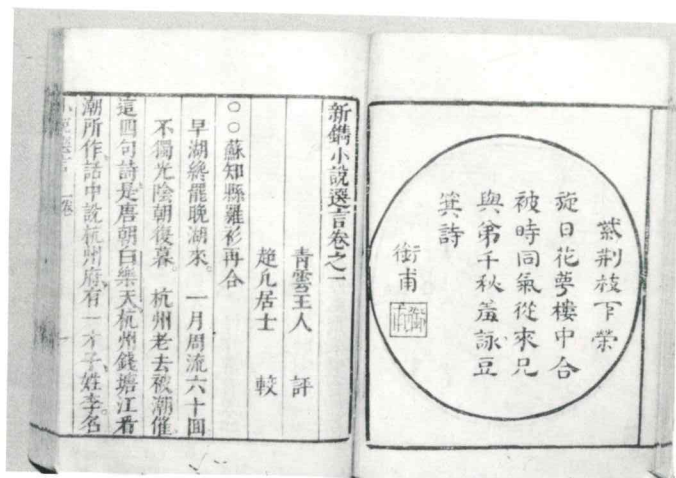 紫荊枝下榮
旋日花萼樓中合
被時同氣從來兄
與弟千秋羞詠豆
萁詩
甫
新鐫小說選言卷之一
青雲主人 評
超凡居士 較
○○蘇知縣羅衫再合
早潮纔罷晚潮來。 一月周流六十回
不獨光陰朝復暮。 杭州老去被潮催
這四句詩是唐朝白樂天杭州錢塘江看
潮所作話中說杭州府有一才子姓李名